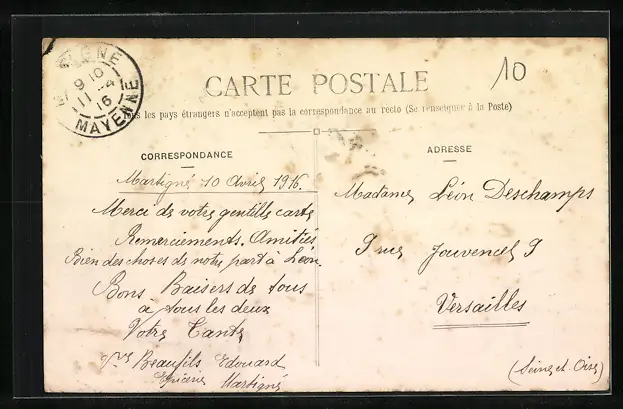 IGNE
9 10
11 -4
16
MAYENNE
10
CARTE POSTALE
les pays étrangers n'acceptent pas la correspondance au recto (Se renseigner à la Poste)
CORRESPONDANCE
Martigné 10 Avril 1916.
Merci de votre gentille carte
Remerciements. Amitiés
Bien des choses de notre part à Léon
Bons Baisers de tous
à tous les deux
Votre Tante
Beaufils Edouard
Epicerie Martigné
ADRESSE
Madame Léon Deschamps
9 rue Jouvencel 9
Versailles
(Seine et Oise)